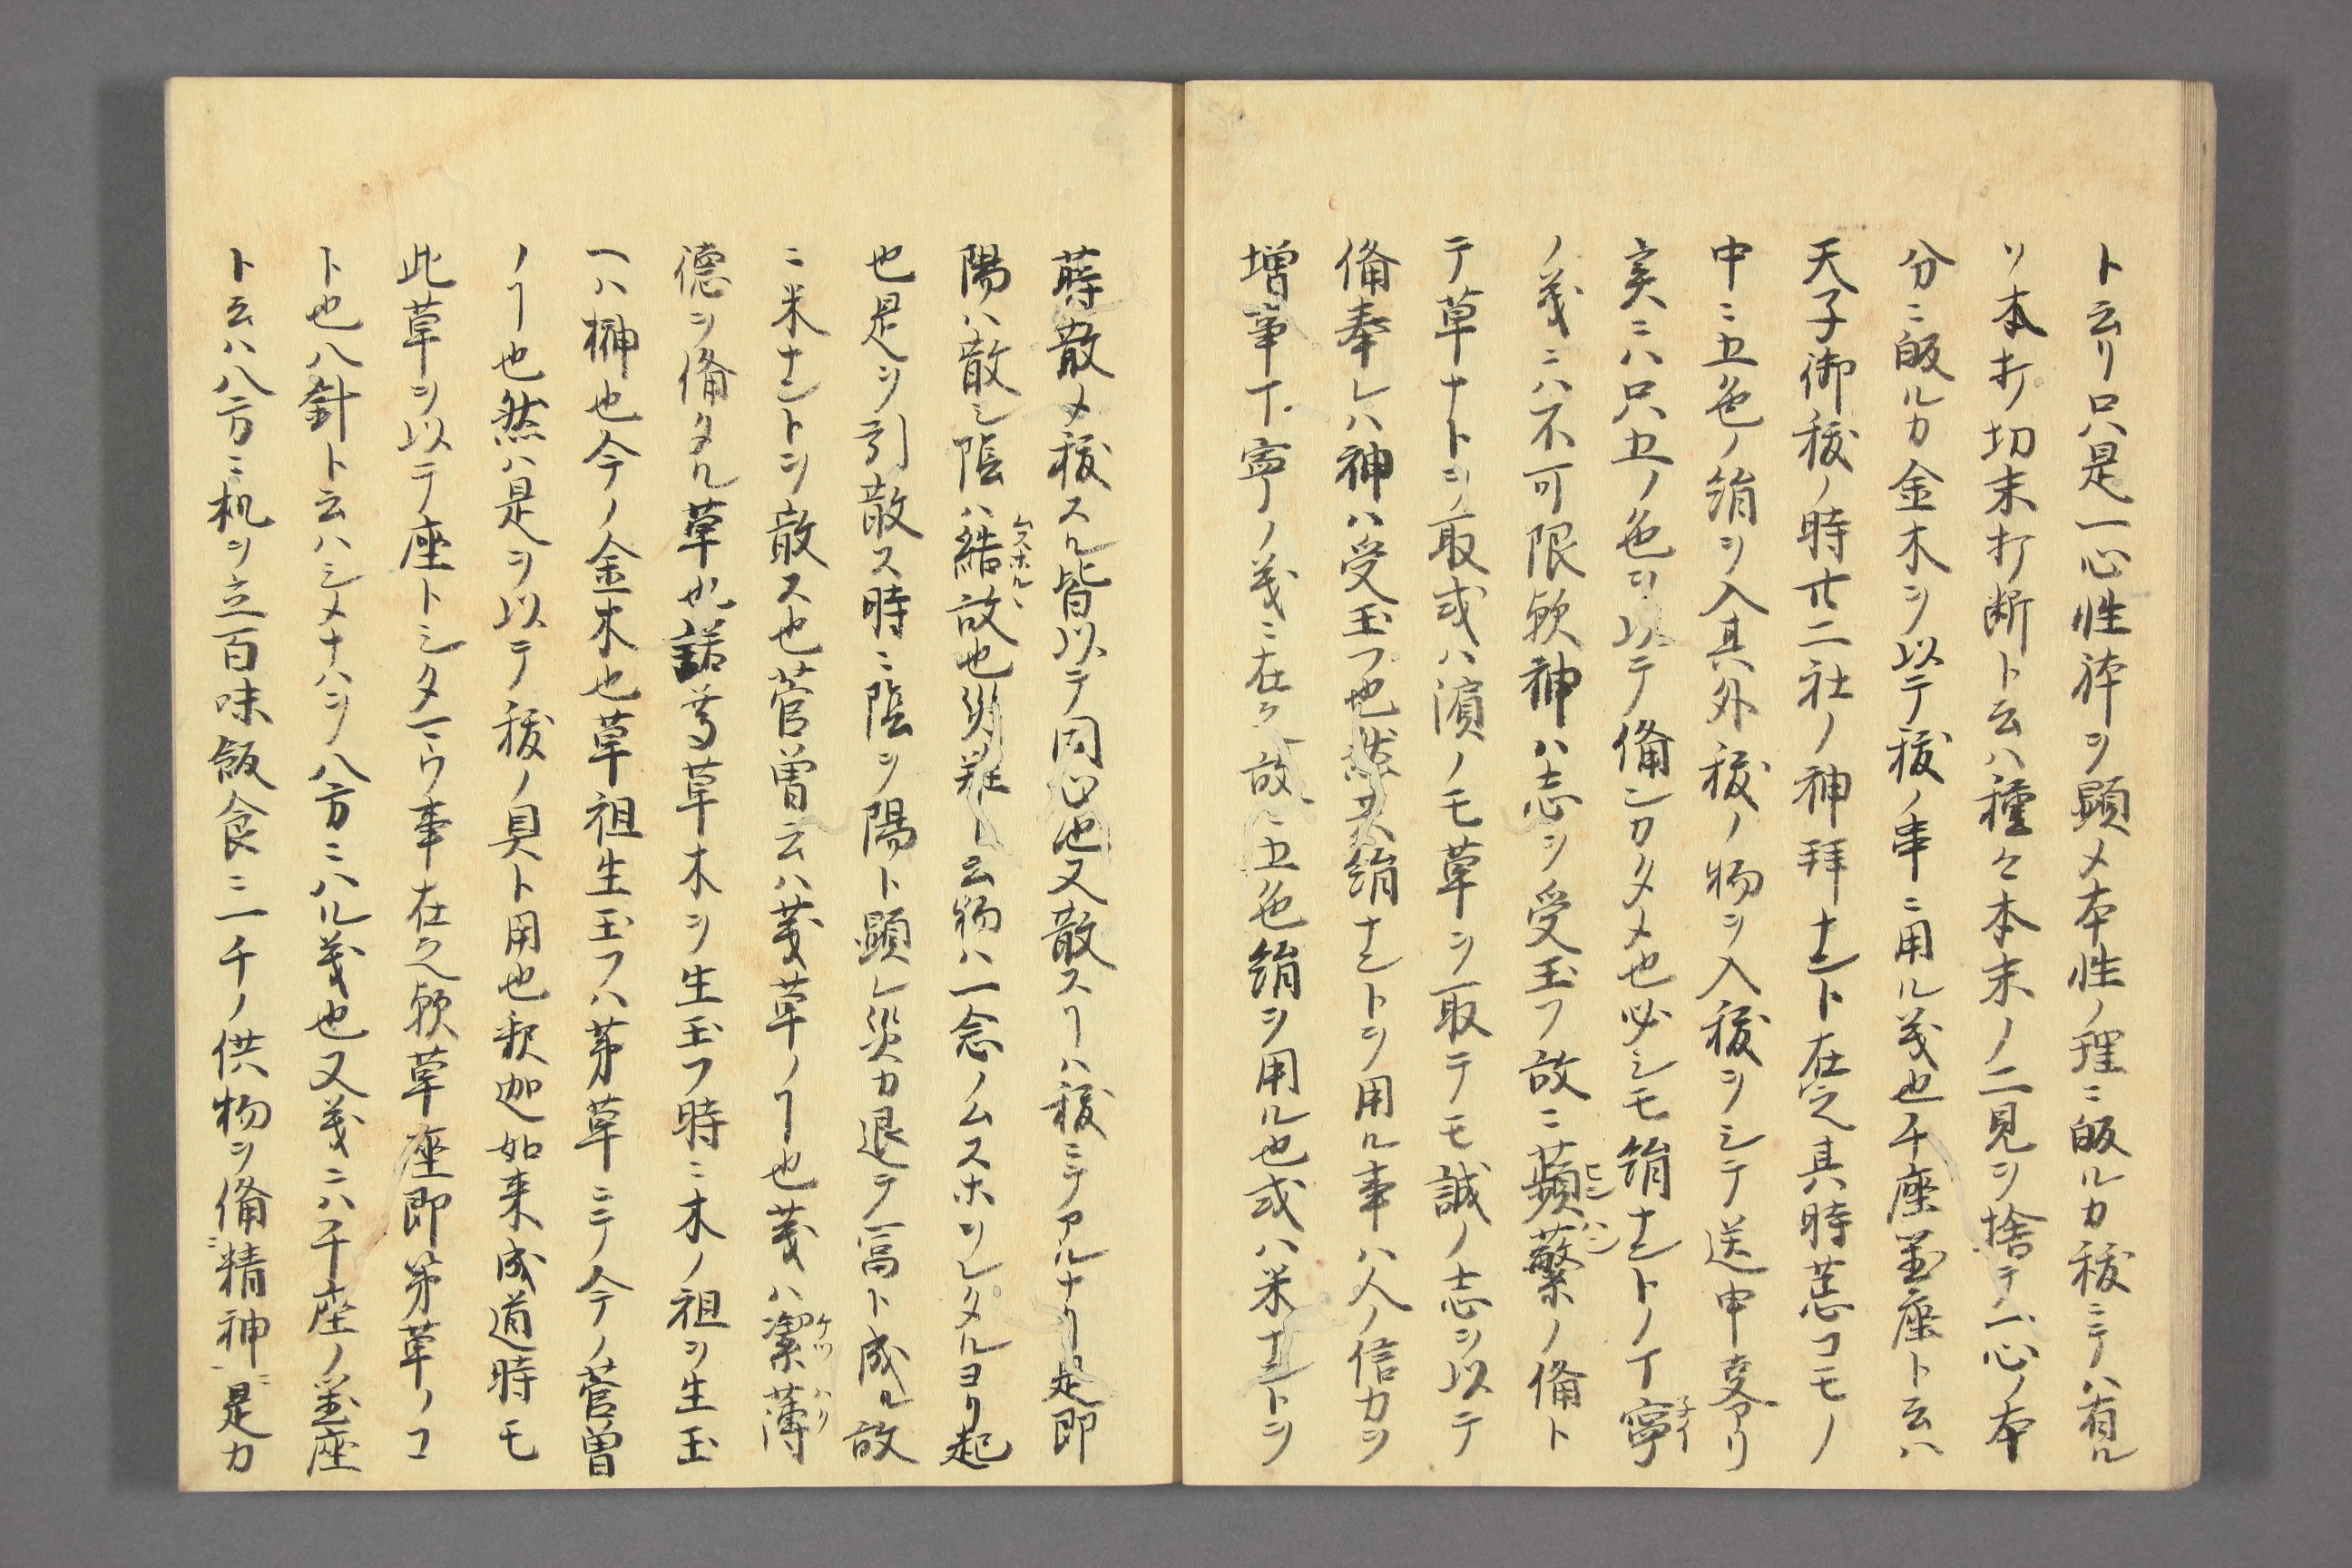 ト云リ只是一心性体ヲ顕メ本性ノ理ニ皈ルカ祓ニテハ有ル
ソ本打切末打断ト云ハ種々本末ノ二見ヲ捨テ一心ノ本
分ニ皈ルカ金木ヲ以テ祓ノ串ニ用ル義也千座置座ト云ハ
天子御祓ノ時廿二社ノ神拜ナント在之其時恙コモノ
中ニ五色ノ絹ヲ入其外祓ノ物ヲ入祓ヲシテ送申変リ
実ニハ只五ノ色ヲ以テ備ンカタメ也必シモ絹ナントノ丁寧
ノ義ニハ不可限欤神ハ志ヲ受玉フ故ニ蘋蘩ノ備ト
テ草ナトヲ取或ハ濱ノモ草ヲ取テモ誠ノ志ヲ以テ
備奉レハ神ハ受玉フ也然共絹ナントヲ用ル事ハ人ノ信力ヲ
増事丁寧ノ義ニ在之故ニ五色絹ヲ用ル也或ハ米ナントヲ
蒔散メ祓スル皆以テ同心也又散スヿハ祓ニテアルナリ是即
陽ハ散シ陰ハ結故也災難ト云物ハ一念ノムスホヲレタルヨリ起
也是ヲ引散ス時ニ陰ヲ陽ト顕レ災カ退テ冨ト成ル故
ニ米ナントヲ散ス也菅曽云ハ茂草ノヿ也茂ハ潔薄
德ヲ備タル草也諾尊草木ヲ生玉フ時ニ木ノ祖ヲ生玉
一ハ榊也今ノ金木也草祖生玉フハ茅草ニテ今ノ菅曽
ノヿ也然ハ是ヲ以テ祓ノ具ト用也釈迦如来成道時モ
此草ヲ以テ座トシタマウ事在之欤草座即茅草ノコ
ト也八針ト云ハシメナハヲ八方ニハル義也又義ニハ千座ノ置座
ト云ハ八方ニ机ヲ立百味飯食ニ一千ノ供物ヲ備精神ニ是カ